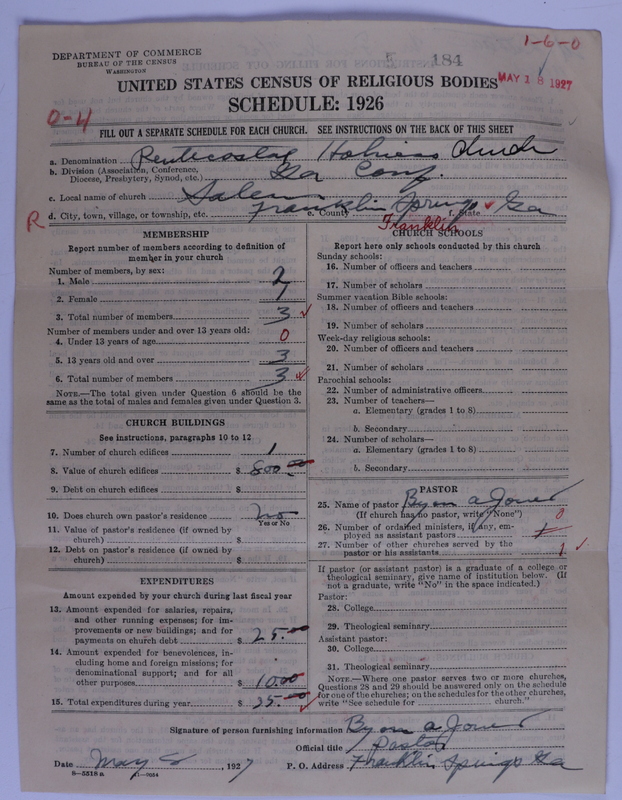 1-6-0
DEPARTMENT OF COMMERCE
BUREAU OF THE CENSUS
WASHINGTON
184
UNITED STATES CENSUS OF RELIGIOUS BODIES
MAY 18 1927
SCHEDULE: 1926
0-4
FILL OUT A SEPARATE SCHEDULE FOR EACH CHURCH. SEE INSTRUCTIONS ON THE BACK OF THIS SHEET
a. Denomination Pentecostal Holiness Church
b. Division (Association, Conference, Diocese, Presbytery, Synod, etc.) Ga Conf.
c. Local name of church Salem
R d. City, town, village, or township, etc. Franklin Springs e. County Franklin f. State Ga
MEMBERSHIP
Report number of members according to definition of member in your church
Number of members, by sex:
1. Male 2
2. Female 1
3. Total number of members 3
Number of members under and over 13 years old:
4. Under 13 years of age 0
5. 13 years old and over 3
6. Total number of members 3
NOTE.—The total given under Question 6 should be the same as the total of males and females given under Question 3.
CHURCH BUILDINGS
See instructions, paragraphs 10 to 12
7. Number of church edifices 1
8. Value of church edifices $ 800.00
9. Debt on church edifices $
10. Does church own pastor's residence No
Yes or No
11. Value of pastor's residence (if owned by church) $
12. Debt on pastor's residence (if owned by church) $
EXPENDITURES
Amount expended by your church during last fiscal year
13. Amount expended for salaries, repairs, and other running expenses; for improvements or new buildings; and for payments on church debt $ 25.00
14. Amount expended for benevolences, including home and foreign missions; for denominational support; and for all other purposes $ 10.00
15. Total expenditures during year $ 35.00
CHURCH SCHOOLS
Report here only schools conducted by this church
Sunday schools:
16. Number of officers and teachers
17. Number of scholars
Summer vacation Bible schools:
18. Number of officers and teachers
19. Number of scholars
Week-day religious schools:
20. Number of officers and teachers
21. Number of scholars
Parochial schools:
22. Number of administrative officers
23. Number of teachers—
a. Elementary (grades 1 to 8)
b. Secondary
24. Number of scholars—
a. Elementary (grades 1 to 8)
b. Secondary
PASTOR
25. Name of pastor Byon a Jones
(If church has no pastor, write "None")
26. Number of ordained ministers, if any, employed as assistant pastors 0
27. Number of other churches served by the pastor or his assistants 1
If pastor (or assistant pastor) is a graduate of a college or theological seminary, give name of institution below. (If not a graduate, write "No" in the space indicated.)
Pastor:
28. College
29. Theological seminary
Assistant pastor:
30. College
31. Theological seminary
NOTE.—Where one pastor serves two or more churches, Questions 28 and 29 should be answered only on the schedule for one of the churches; on the schedules for the other churches, write "See schedule for church."
Signature of person furnishing information Byon a Jones
Official title Pastor
Date May 2, 1927 P. O. Address Franklin Springs Ga
8—5518 a 11—9034